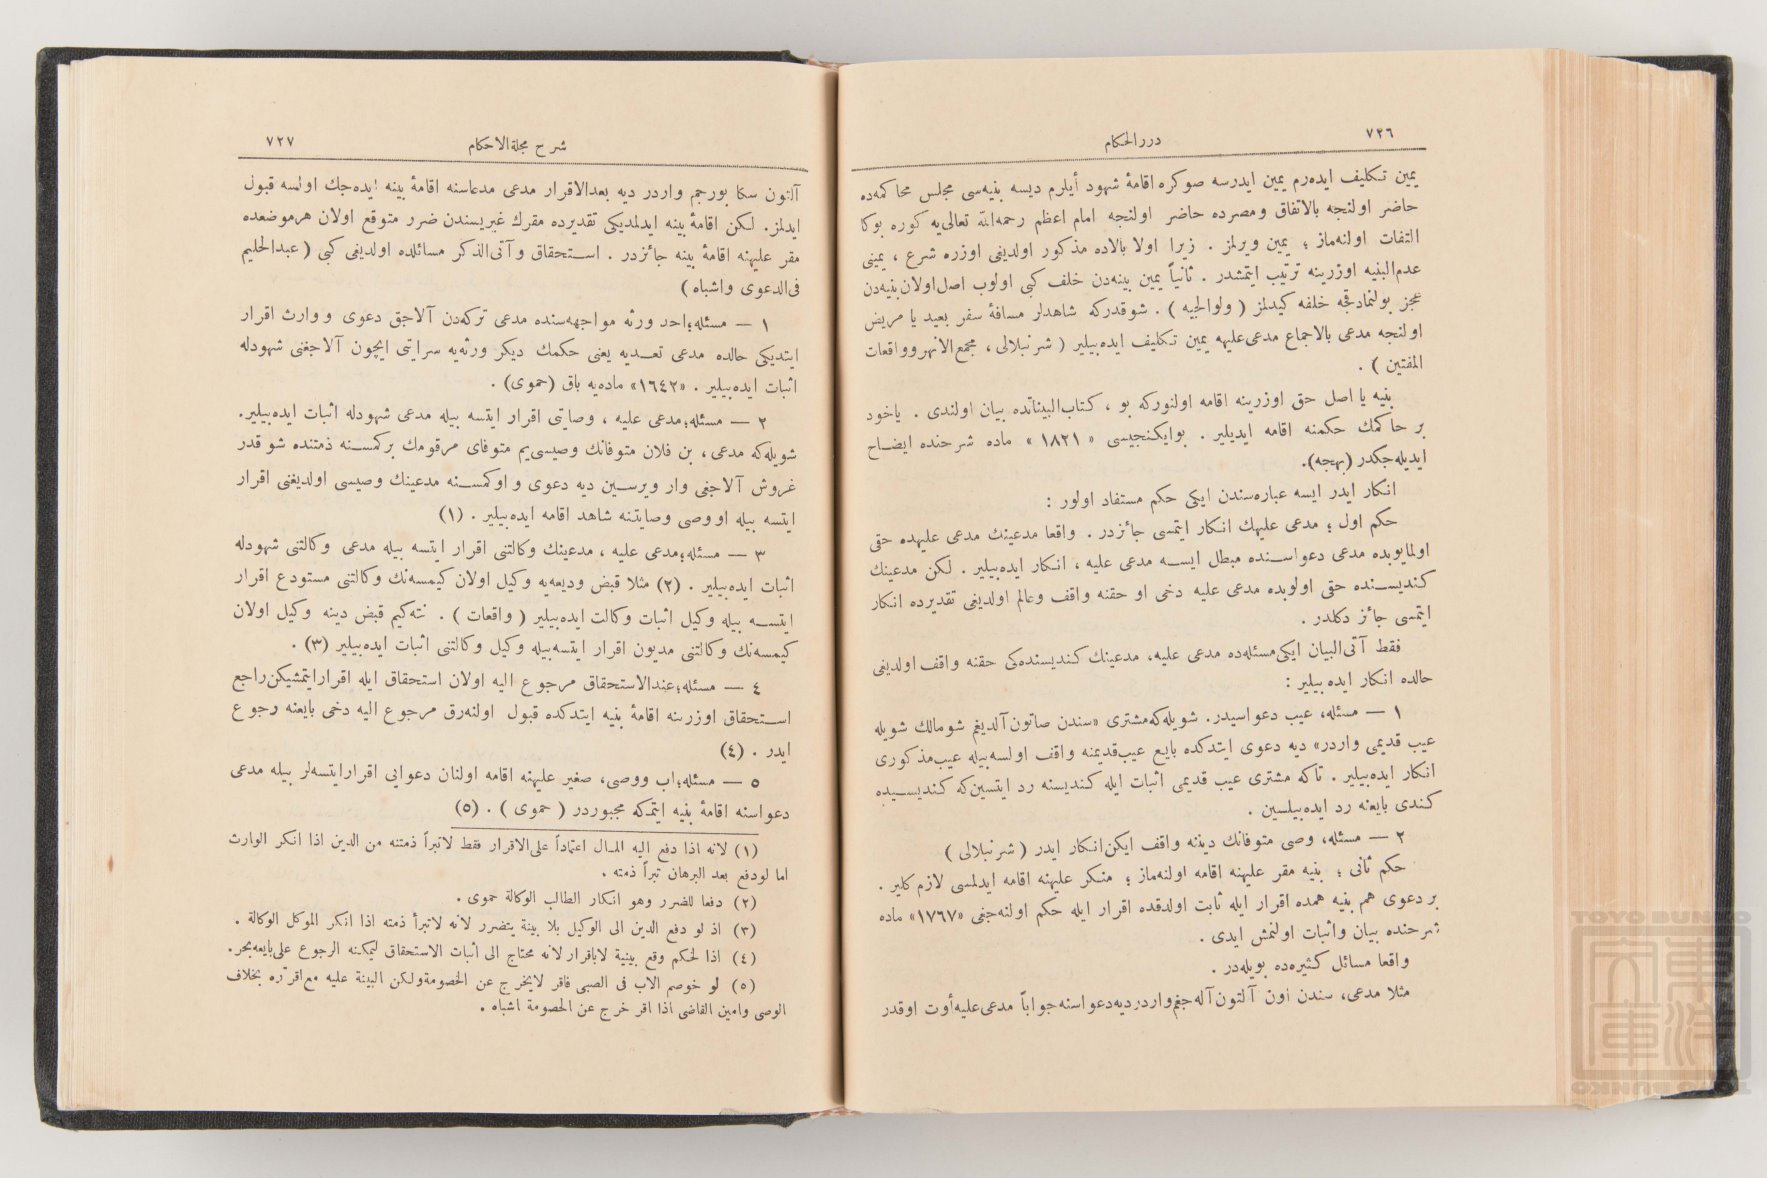 ٧٢٦
دررالحكام
يمين تكليف ايده‌رم يمين ايدرسه صوكره اقامهٔ شهود أيلرم ديسه بنيه‌سى مجلس محاكمه‌ده
حاضر اولنجه بالاتفاق ومصرده حاضر اولنجه امام اعظم رحمه‌الله تعالى‌يه كوره بوكا
التفات اولنه‌ماز ؛ يمين ويرلمز . زيرا اولا بالاده مذكور اولديغى اوزره شرع ، يمينى
عدم‌البنيه اوزرينه ترتيب ايتمشدر . ثانياً يمين بينه‌دن خلف كبى اولوب اصل‌اولان بنيه‌دن
عجز بولنمادقجه خلفه كيدلمز ( ولوالجيه ) . شوقدركه شاهدلر مسافهٔ سفر بعيد يا مريض
اولنجه مدعى بالاجماع مدعى‌عليه يمين تكليف ايده‌بيلير ( شرنبلالى ، مجمع‌الانهر وواقعات
المفتين ) .
بنيه يا اصل حق اوزرينه اقامه اولنوركه بو ، كتاب‌البيناتده بيان اولندى . ياخود
بر حاكمك حكمنه اقامه ايديلير . بوايكنجيسى « ١٨٢١ » ماده شرحنده ايضاح
ايديله‌جكدر (بهجه).
انكار ايدر ايسه عباره‌سندن ايكى حكم مستفاد اولور :
حكم اول ؛ مدعى عليهك انكار ايتمسى جائزدر . واقعا مدعينك مدعى عليهده حقى
اولمايوبده مدعى دعواسنده مبطل ايسه مدعى عليه ، انكار ايده‌بيلير . لكن مدعينك
كنديسنده حقى اولوبده مدعى عليه دخى او حقنه واقف وعالم اولديغى تقديرده انكار
ايتمسى جائز دكلدر .
فقط آتى‌البيان ايكى‌مسئله‌ده مدعى عليه، مدعينك كنديسنده‌كى حقنه واقف اولديغى
حالده انكار ايده بيلير :
١ — مسئله، عيب دعواسيدر. شويله‌كه‌مشترى «سندن صاتون آلديغم شومالك شويله
عيب قديمى واردر» ديه دعوى ايتدكده بايع عيب‌قديمنه واقف اولسه‌بيله عيب‌مذكورى
انكار ايده‌بيلير . تاكه مشترى عيب قديمى اثبات ايله كنديسنه رد ايتسين‌كه كنديسيده
كندى بايعنه رد ايده‌بيلسين .
٢ — مسئله، وصى متوفانك ديننه واقف ايكن‌انكار ايدر ( شرنبلالى )
حكم ثانى ؛ بنيه مقر عليهنه اقامه اولنه‌ماز ؛ منكر عليهنه اقامه ايدلمسى لازم كلير .
بر دعوى هم بنيه همده اقرار ايله ثابت اولدقده اقرار ايله حكم اولنه‌جغى «١٧٦٧» ماده
شرحنده بيان واثبات اولنمش ايدى .
واقعا مسائل كثيره‌ده بويله‌در .
مثلا مدعى، سندن اون آلتون‌آله‌جغم‌واردرديه‌دعواسنه‌جواباً مدعى‌عليه‌أوت اوقدر
شرح مجلةالاحكام
٧٢٧
آلتون سكا بورجم واردر ديه بعدالاقرار مدعى مدعاسنه اقامهٔ بينه ايده‌جك اولسه قبول
ايدلمز. لكن اقامهٔ بينه ايدلمديكى تقديرده مقرك غيريسندن ضرر متوقع اولان هرموضعده
مقر عليهنه اقامهٔ بينه جائزدر . استحقاق و آتى‌الذكر مسائلده اولديغى كبى ( عبدالحليم
فى‌الدعوى واشباه )
١ — مسئله؛احد ورثه مواجهه‌سنده مدعى تركه‌دن آلاجق دعوى و وارث اقرار
ايتديكى حالده مدعى تعديه يعنى حكمك ديكر ورثه‌يه سرايتى ايچون آلاجغنى شهودله
اثبات ايده‌بيلير . «١٦٤٢» ماده‌يه باق (حموى) .
٢ — مسئله؛مدعى عليه ، وصايتى اقرار ايتسه بيله مدعى شهودله اثبات ايده‌بيلير.
شويله‌كه مدعى، بن فلان متوفانك وصيسى‌يم متوفاى مرقومك بركمسنه ذمتنده شو قدر
غروش آلاجغى وار ويرسين ديه دعوى و اوكمسنه مدعينك وصيسى اولديغنى اقرار
ايتسه بيله اووصى وصايتنه شاهد اقامه ايده‌بيلير . (١)
٣ — مسئله؛مدعى عليه ، مدعينك وكالتنى اقرار ايتسه بيله مدعى وكالتنى شهودله
اثبات ايده‌بيلير . (٢) مثلا قبض وديعه‌يه وكيل اولان كيمسه‌نك وكالتنى مستودع اقرار
ايتسه بيله وكيل اثبات وكالت ايده‌بيلير ( واقعات ) . نته‌كيم قبض دينه وكيل اولان
كيمسه‌نك وكالتنى مديون اقرار ايتسه‌بيله وكيل وكالتنى اثبات ايده‌بيلير (٣) .
٤ — مسئله؛عندالاستحقاق مرجوع اليه اولان استحقاق ايله اقرارايتمشيكن‌راجع
استحقاق اوزرينه اقامهٔ بنيه ايتدكده قبول اولنه‌رق مرجوع اليه دخى بايعنه رجوع
ايدر . (٤)
٥ — مسئله؛اب ووصى، صغير عليهنه اقامه اولنان دعوايى اقرارايتسه‌لر بيله مدعى
دعواسنه اقامهٔ بنيه ايتمكه مجبوردر ( حموى ) . (٥)
(١) لانه اذا دفع اليه المال اعتماداً على‌الاقرار فقط لاتبرأ ذمتنه من الدين اذا انكر الوارث
اما لودفع بعد البرهان تبرأ ذمته .
(٢) دفعا للضرر وهو انكار الطالب الوكالة حموى .
(٣) اذ لو دفع الدين الى الوكيل بلا بينة يتضرر لانه لاتبرأ ذمته اذا انكر الموكل الوكالة .
(٤) اذا لحكم وقع ببينية لاباقرار لانه محتاج الى اثبات الاستحقاق ليمكنه الرجوع على‌بايعه‌بحر.
(٥) لو خوصم الاب فى الصبى فاقر لايخرج عن الخصومةولكن البينة عليه مع‌اقراره بخلاف
الوصى وامين القاضى اذا اقر خرج عن الخصومة اشباه .
TOYO BUNKO
東洋文庫